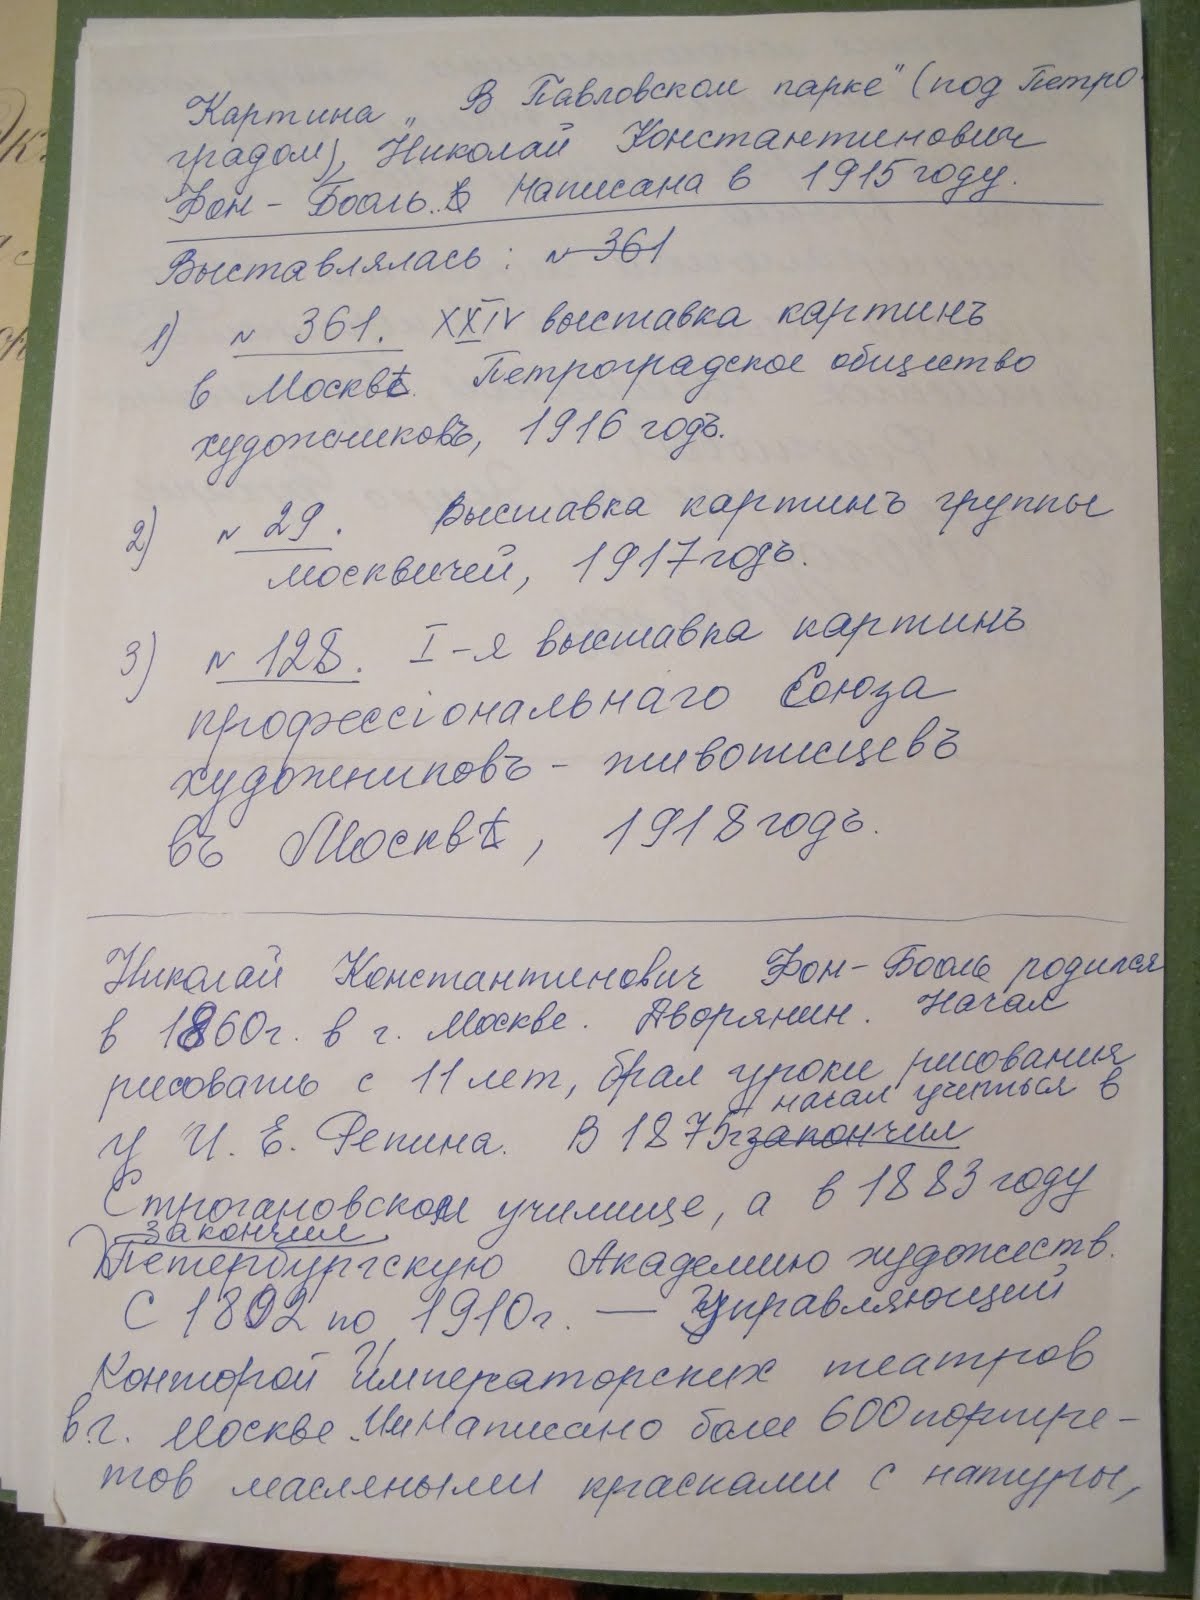 Картина „ В Павловском парке" (под Петро-
градом), Николай Константинович
Фон-Бооль. Написана в 1915 году.
Выставлялась: № 361
1) № 361. XXIV выставка картинъ
в Москвѣ. Петроградское общество
художниковъ, 1916 годъ.
2) № 29. Выставка картинъ группы
москвичей, 1917 годъ.
3) № 128. I-я выставка картинъ
профессіональнаго Союза
художниковъ - живописцевъ
въ Москвѣ, 1918 годъ.
Николай Константинович Фон-Бооль родился
в 1860г. в г. Москве. Дворянин. Начал
рисовать с 11 лет, брал уроки рисования
начал учиться в
у И. Е. Репина. В 1875г закончил
Строгановском училище, а в 1883 году
закончил
Петербургскую Академию художеств.
С 1892 по 1910г. — Управляющий
Конторой Императорских театров
в г. Москве. Им написано более 600 портре-
тов масляными красками с натуры,